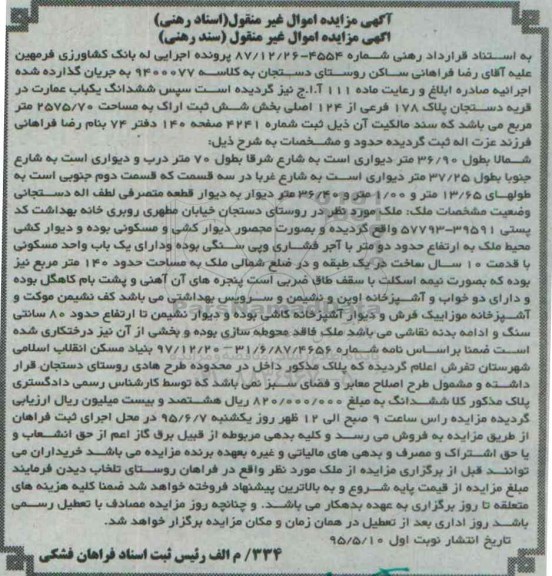 آگهی مزایده اموال غیر منقول(اسناد رهنی)
اگهی مزایده اموال غیر منقول (سند رهنی)
به استناد قرارداد رهنی شماره ۴۵۵۴-۸۷/۱۲/۲۶ پرونده اجرایی له بانک کشاورزی فرمهین
علیه آقای رضا فراهانی ساکن روستای دستجان به کلاسه ۹۴۰۰۰۷۷ به جریان گذارده شده
اجرائیه صادره ابلاغ و رعایت ماده ۱۱۱ آ.ا.ج نیز گردیده است سپس ششدانگ یکباب عمارت در
قریه دستجان پلاک ۱۷۸ فرعی از ۱۲۴ اصلی بخش شش ثبت اراک به مساحت ۲۵۷۵/۷۰ متر
مربع می باشد که سند مالکیت آن ذیل ثبت شماره ۴۲۴۱ صفحه ۱۴۰ دفتر ۷۴ بنام رضا فراهانی
فرزند عزت اله ثبت گردیده حدود و مشخصات به شرح ذیل:
شمالا بطول ۳۶/۹۰ متر دیواری است به شارع شرقا بطول ۷۰ متر درب و دیواری است به شارع
جنوبا بطول ۳۷/۲۵ متر دیواری است به شارع غربا در سه قسمت که قسمت دوم جنوبی است به
طولهای ۱۳/۶۵ متر و ۱/۰۰ متر و ۳۶/۴۰ متر دیوار به دیوار قطعه متصرفی لطف اله دستجانی
وضعیت مشخصات ملک: ملک مورد نظر در روستای دستجان خیابان مطهری روبری خانه بهداشت کد
پستی ۳۹۵۹۱-۵۷۷۹۳ واقع گردیده و بصورت محصور دیوار کشی و مسکونی بوده و دیوار کشی
محیط ملک به ارتفاع حدود دو متر با آجر فشاری وپی سنگی بوده ودارای یک باب واحد مسکونی
با قدمت ۱۰ سال ساخت در یک طبقه و در ضلع شمالی ملک به مساحت حدود ۱۴۰ متر مربع نیز
بوده که بصورت نیمه اسکلت با سقف طاق ضربی است پنجره های آن آهنی و پشت بام کاهگل بوده
و دارای دو خواب و آشپزخانه اوپن و نشیمن و سرویس بهداشتی می باشد کف نشیمن موکت و
آشپزخانه موزاییک فرش و دیوار آشپزخانه کاشی بوده و دیوار نشیمن تا ارتفاع حدود ۸۰ سانتی
سنگ و ادامه بدنه نقاشی می باشد ملک فاقد محوطه سازی بوده و بخشی از آن نیز درختکاری شده
است ضمنا براساس نامه شماره ۳۱/۶/۸۷/۴۶۵۶-۹۷/۱۲/۲۰ بنیاد مسکن انقلاب اسلامی
شهرستان تفرش اعلام گردیده که پلاک مذکور داخل در محدوده طرح هادی روستای دستجان قرار
داشته و مشمول طرح اصلاح معابر و فضای سبز نمی باشد که توسط کارشناس رسمی دادگستری
پلاک مذکور کلا ششدانگ به مبلغ ۸۲۰/۰۰۰/۰۰۰ ریال هشتصد و بیست میلیون ریال ارزیابی
گردیده مزایده راس ساعت ۹ صبح الی ۱۲ ظهر روز یکشنبه ۹۵/۶/۷ در محل اجرای ثبت فراهان
از طریق مزایده به فروش می رسد و کلیه بدهی مربوطه از قبیل برق گاز اعم از حق انشعاب و
یا حق اشتراک و مصرف و بدهی های مالیاتی و غیره بعهده برنده مزایده می باشد خریداران می
توانند قبل از برگزاری مزایده از ملک مورد نظر واقع در فراهان روستای تلخاب دیدن فرمایند
مبلغ مزایده از قیمت پایه شروع و به بالاترین پیشنهاد فروخته خواهد شد ضمنا کلیه هزینه های
متعلقه تا روز برگزاری به عهده بدهکار می باشد. و چنانچه روز مزایده مصادف با تعطیل رسمی
باشد روز اداری بعد از تعطیل در همان زمان و مکان مزایده برگزار خواهد شد.
تاریخ انتشار نوبت اول ۹۵/۵/۱۰
۳۳۴/ م الف رئیس ثبت اسناد فراهان فشکی